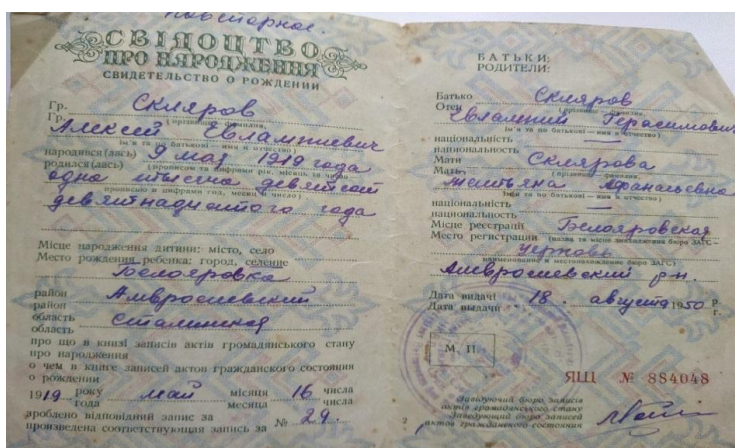 Повторное.
СВІДОЦТВО
ПРО НАРОДЖЕННЯ
СВИДЕТЕЛЬСТВО О РОЖДЕНИИ
Гр. Скляров
Гр. (прізвище — фамилия)
Алексей Евлампиевич
(ім'я та по батькові — имя и отчество)
народився (лась) 9 мая 1919 года
родился (лась) (прописом та цифрами рік, місяць та число —
одна тысяча девятсот
прописью и цифрами год, месяц и число)
девятнадцатого года
Місце народження дитини: місто, село
Место рождения ребенка: город, селение
Белояровка
район Амвросиевский
район
область Сталинская
область
про що в книзі записів актів громадянського стану
про народження
о чем в книге записей актов гражданского состояния
о рождении
1919 року май місяця 16 числа
года месяца числа
зроблено відповідний запис за № 29.
произведена соответствующая запись за
БАТЬКИ:
РОДИТЕЛИ:
Батько Скляров
Отец (прізвище — фамилия)
Евлампий Герасимович
(ім'я та по батькові — имя и отчество)
національність —
национальность
Мати Склярова
Мать (прізвище — фамилия)
Татьяна Афанасьевна
(ім'я та по батькові — имя и отчество)
національність —
национальность
Місце реєстрації Белояровская
Место регистрации (назва та місце знаходження бюро ЗАГС —
церковь
наименование и местонахождение бюро ЗАГС)
Амвросиевский р-н.
Дата видачі 18. августа 1950 р.
Дата выдачи г.
М. П.
ЯЩ № 884048
Завідуючий бюро записів
актів громадянського стану
Заведующий бюро записей
актов гражданского состояния
2